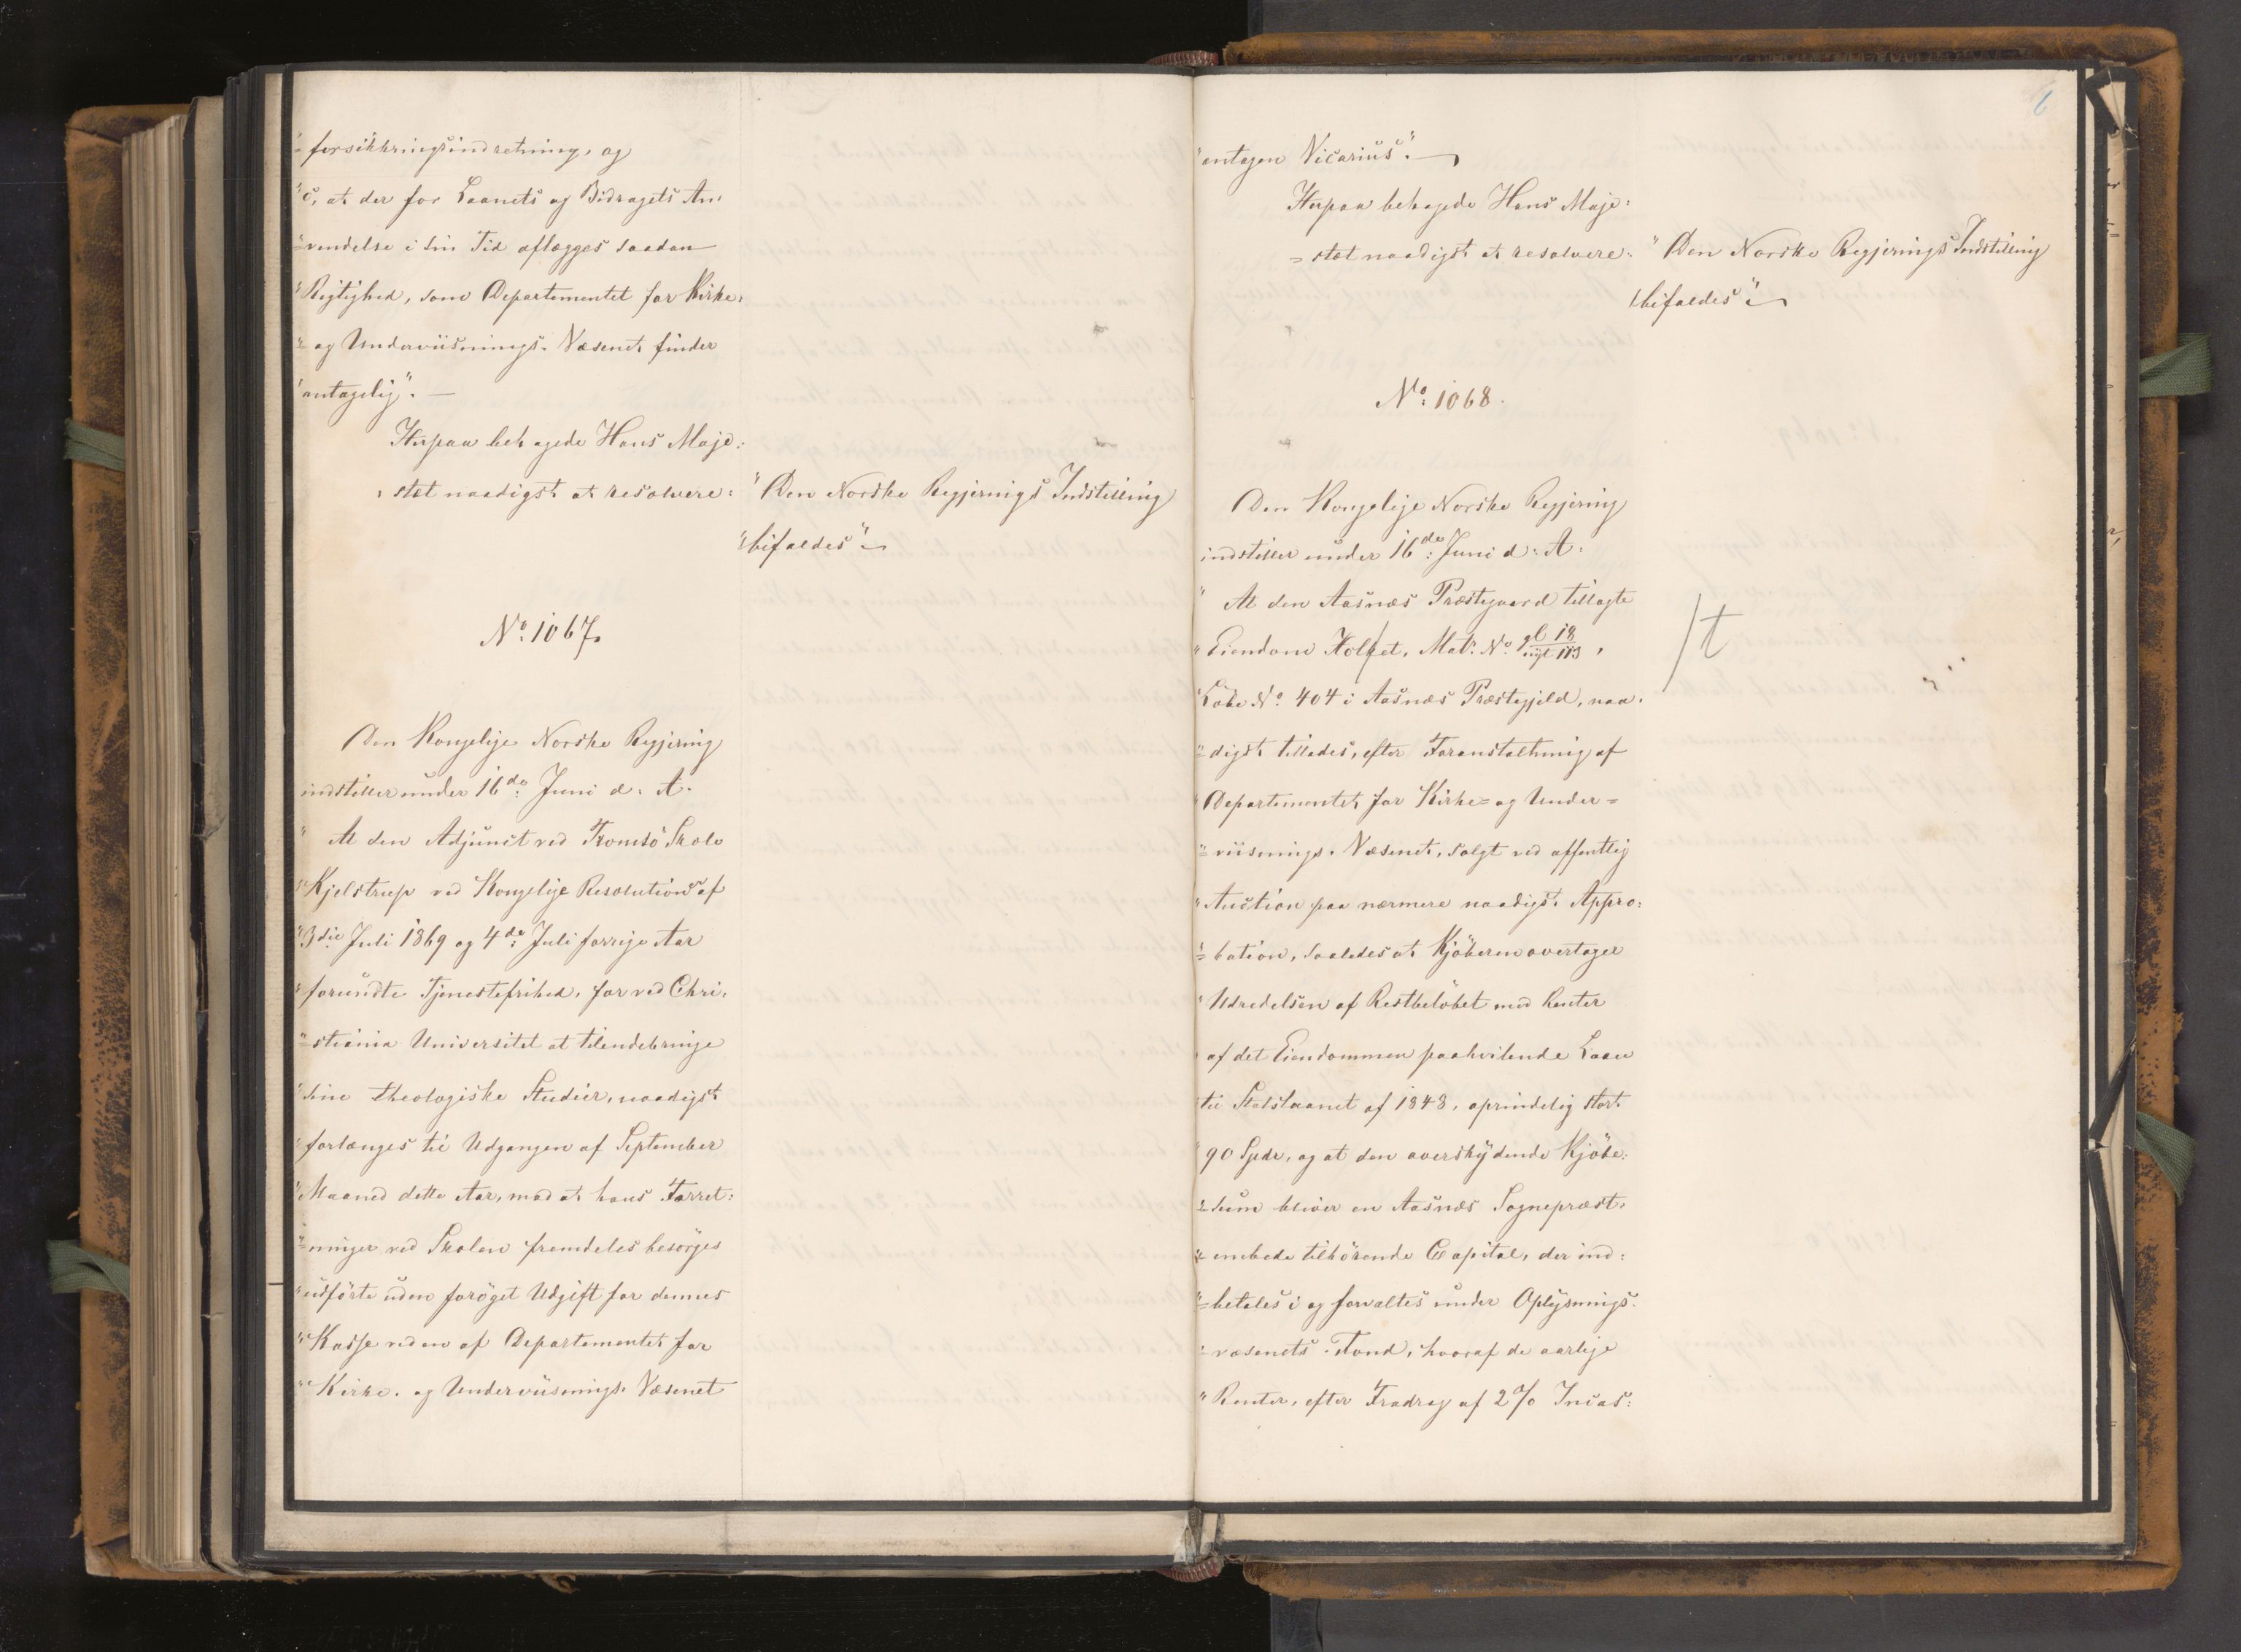 "= forsikkringsindretning, og
"c, at der for Laanets og Bidragets An=
"= vendelse i sin Tid aflægges saadan
"Rigtighed, som Departementet for Kirke=
"= og Underviisnings-Væsenet finder
"antagelig". —
Herpaa behagede Hans Maje=
= stæt naadigst at resolvere:
"Den Norske Regjerings Indstilling
"bifaldes".
No: 1067.
Den Kongelige Norske Regjering
indstiller under 16de: Juni d: A:
" At den Adjunct ved Tromsö Skole
"Kjelstrup ved Kongelige Resolutioner af
"3die Juli 1869 og 4de: Juli forrige Aar
"forundte Tjenestefrihed, for ved Chri=
"= stiania Universitet at tilendebringe
"sine theologiske Studier, naadigst
"forlænges til Udgangen af September
"Maaned dette Aar, mod at hans Forret=
"= ninger ved Skolen fremdeles besörges
"udförte uden foröget Udgift for dennes
"Kasse ved en af Departementet for
"Kirke- og Underviisnings-Væsenet
6
"antagen Vicarius".
Herpaa behagede Hans Maje=
= stæt naadigst at resolvere:
"Den Norske Regjerings Indstilling
"bifaldes".
No: 1068.
Den Kongelige Norske Regjering
indstiller under 16de: Juni d: A:
" At den Aasnæs Præstegaard tillagte
"Eiendom Holket, Matr: No: gl 18 / nyt 113,
/t
"Löbe No: 404 i Aasnæs Præstegjeld, naa=
"= digst tillades, efter Foranstaltning af
"Departementet for Kirke= og Under=
"= viisnings-Væsenet, solgt ved offentlig
"Auction paa nærmere naadigst Appro=
"= bation, saaledes at Kjöberen overtager
"Udredelsen af Restbelöbet med Renter
"af det Eiendommen paahvilende Laan
"til Statslaanet af 1848, oprindelig stort
"90 Spdr, og at den overskydende Kjöbe=
"= sum bliver en Aasnæs Sognepræst=
"= embede tilhörende Capital, der ind=
"= betales i og forvaltes under Oplysnings=
"= væsenets Fond, hvoraf de aarlige
"Renter, efter Fradrag af 2 % Incas=